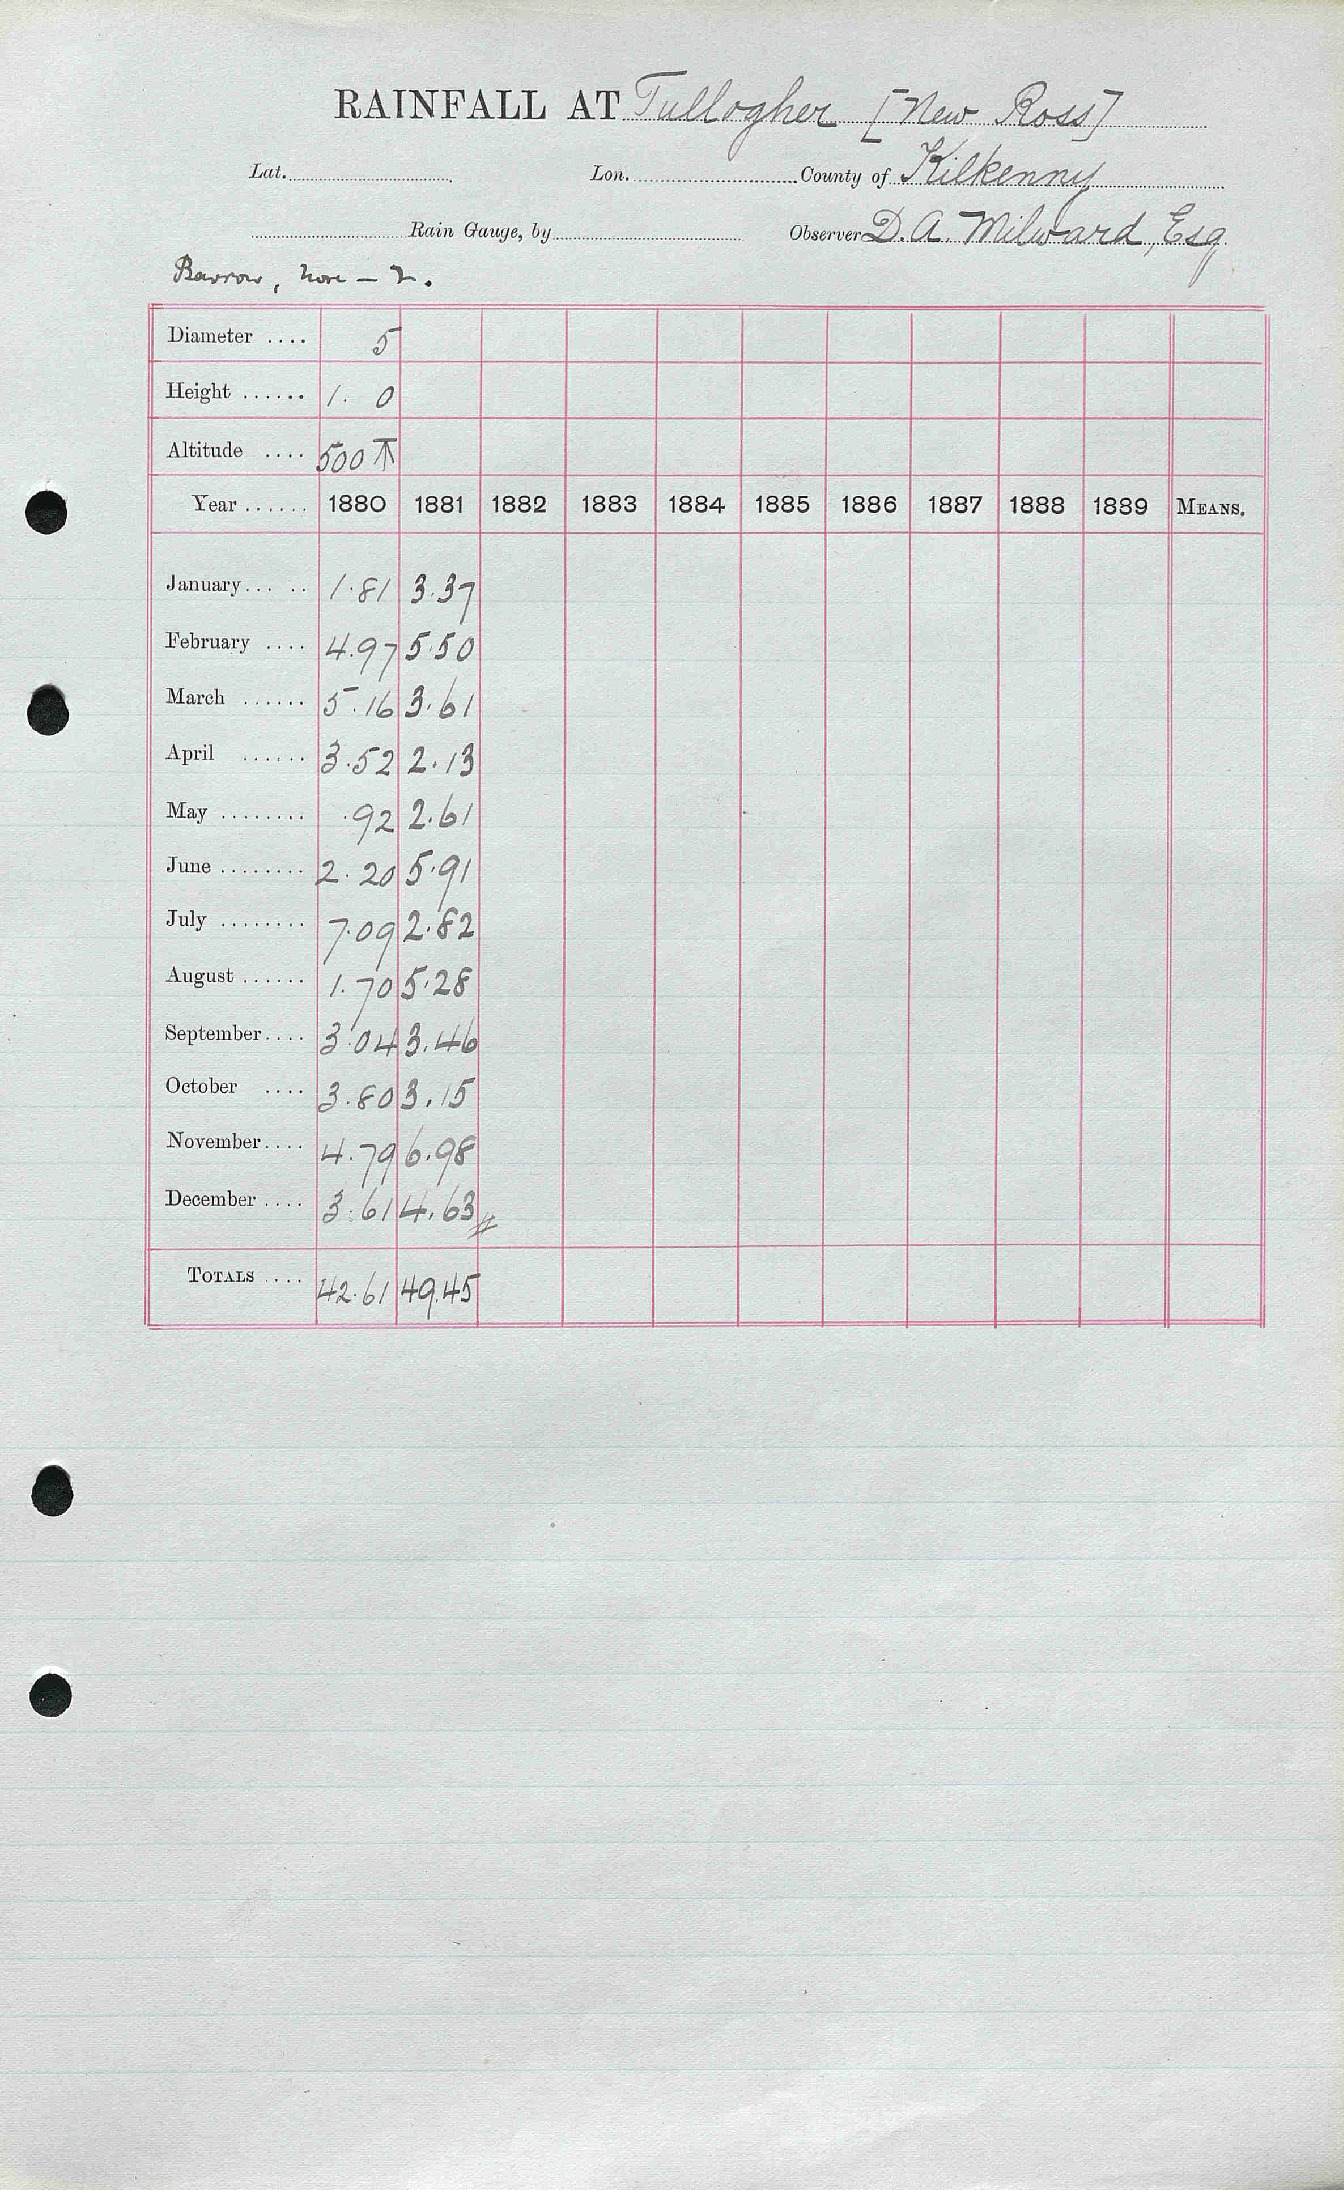 RAINFALL AT Tullogher [New Ross]
Lat. Lon. County of Kilkenny
Rain Gauge, by Observer D. A. Milward, Esq
Barrow, Nore
Diameter .... 5
Height ...... 1. 0
Altitude .... 500
Year ...... 1880 1881 1882 1883 1884 1885 1886 1887 1888 1889 MEANS.
January... .. 1.81 3.37
February .... 4.97 5.50
March ...... 5.16 3.61
April ...... 3.52 2.13
May ........ .92 2.61
June ........ 2.20 5.91
July ........ 7.09 2.82
August ...... 1.70 5.28
September.... 3.04 3.46
October .... 3.80 3.15
November.... 4.79 6.98
December .... 3.61 4.63
TOTALS .... 42.61 49.45